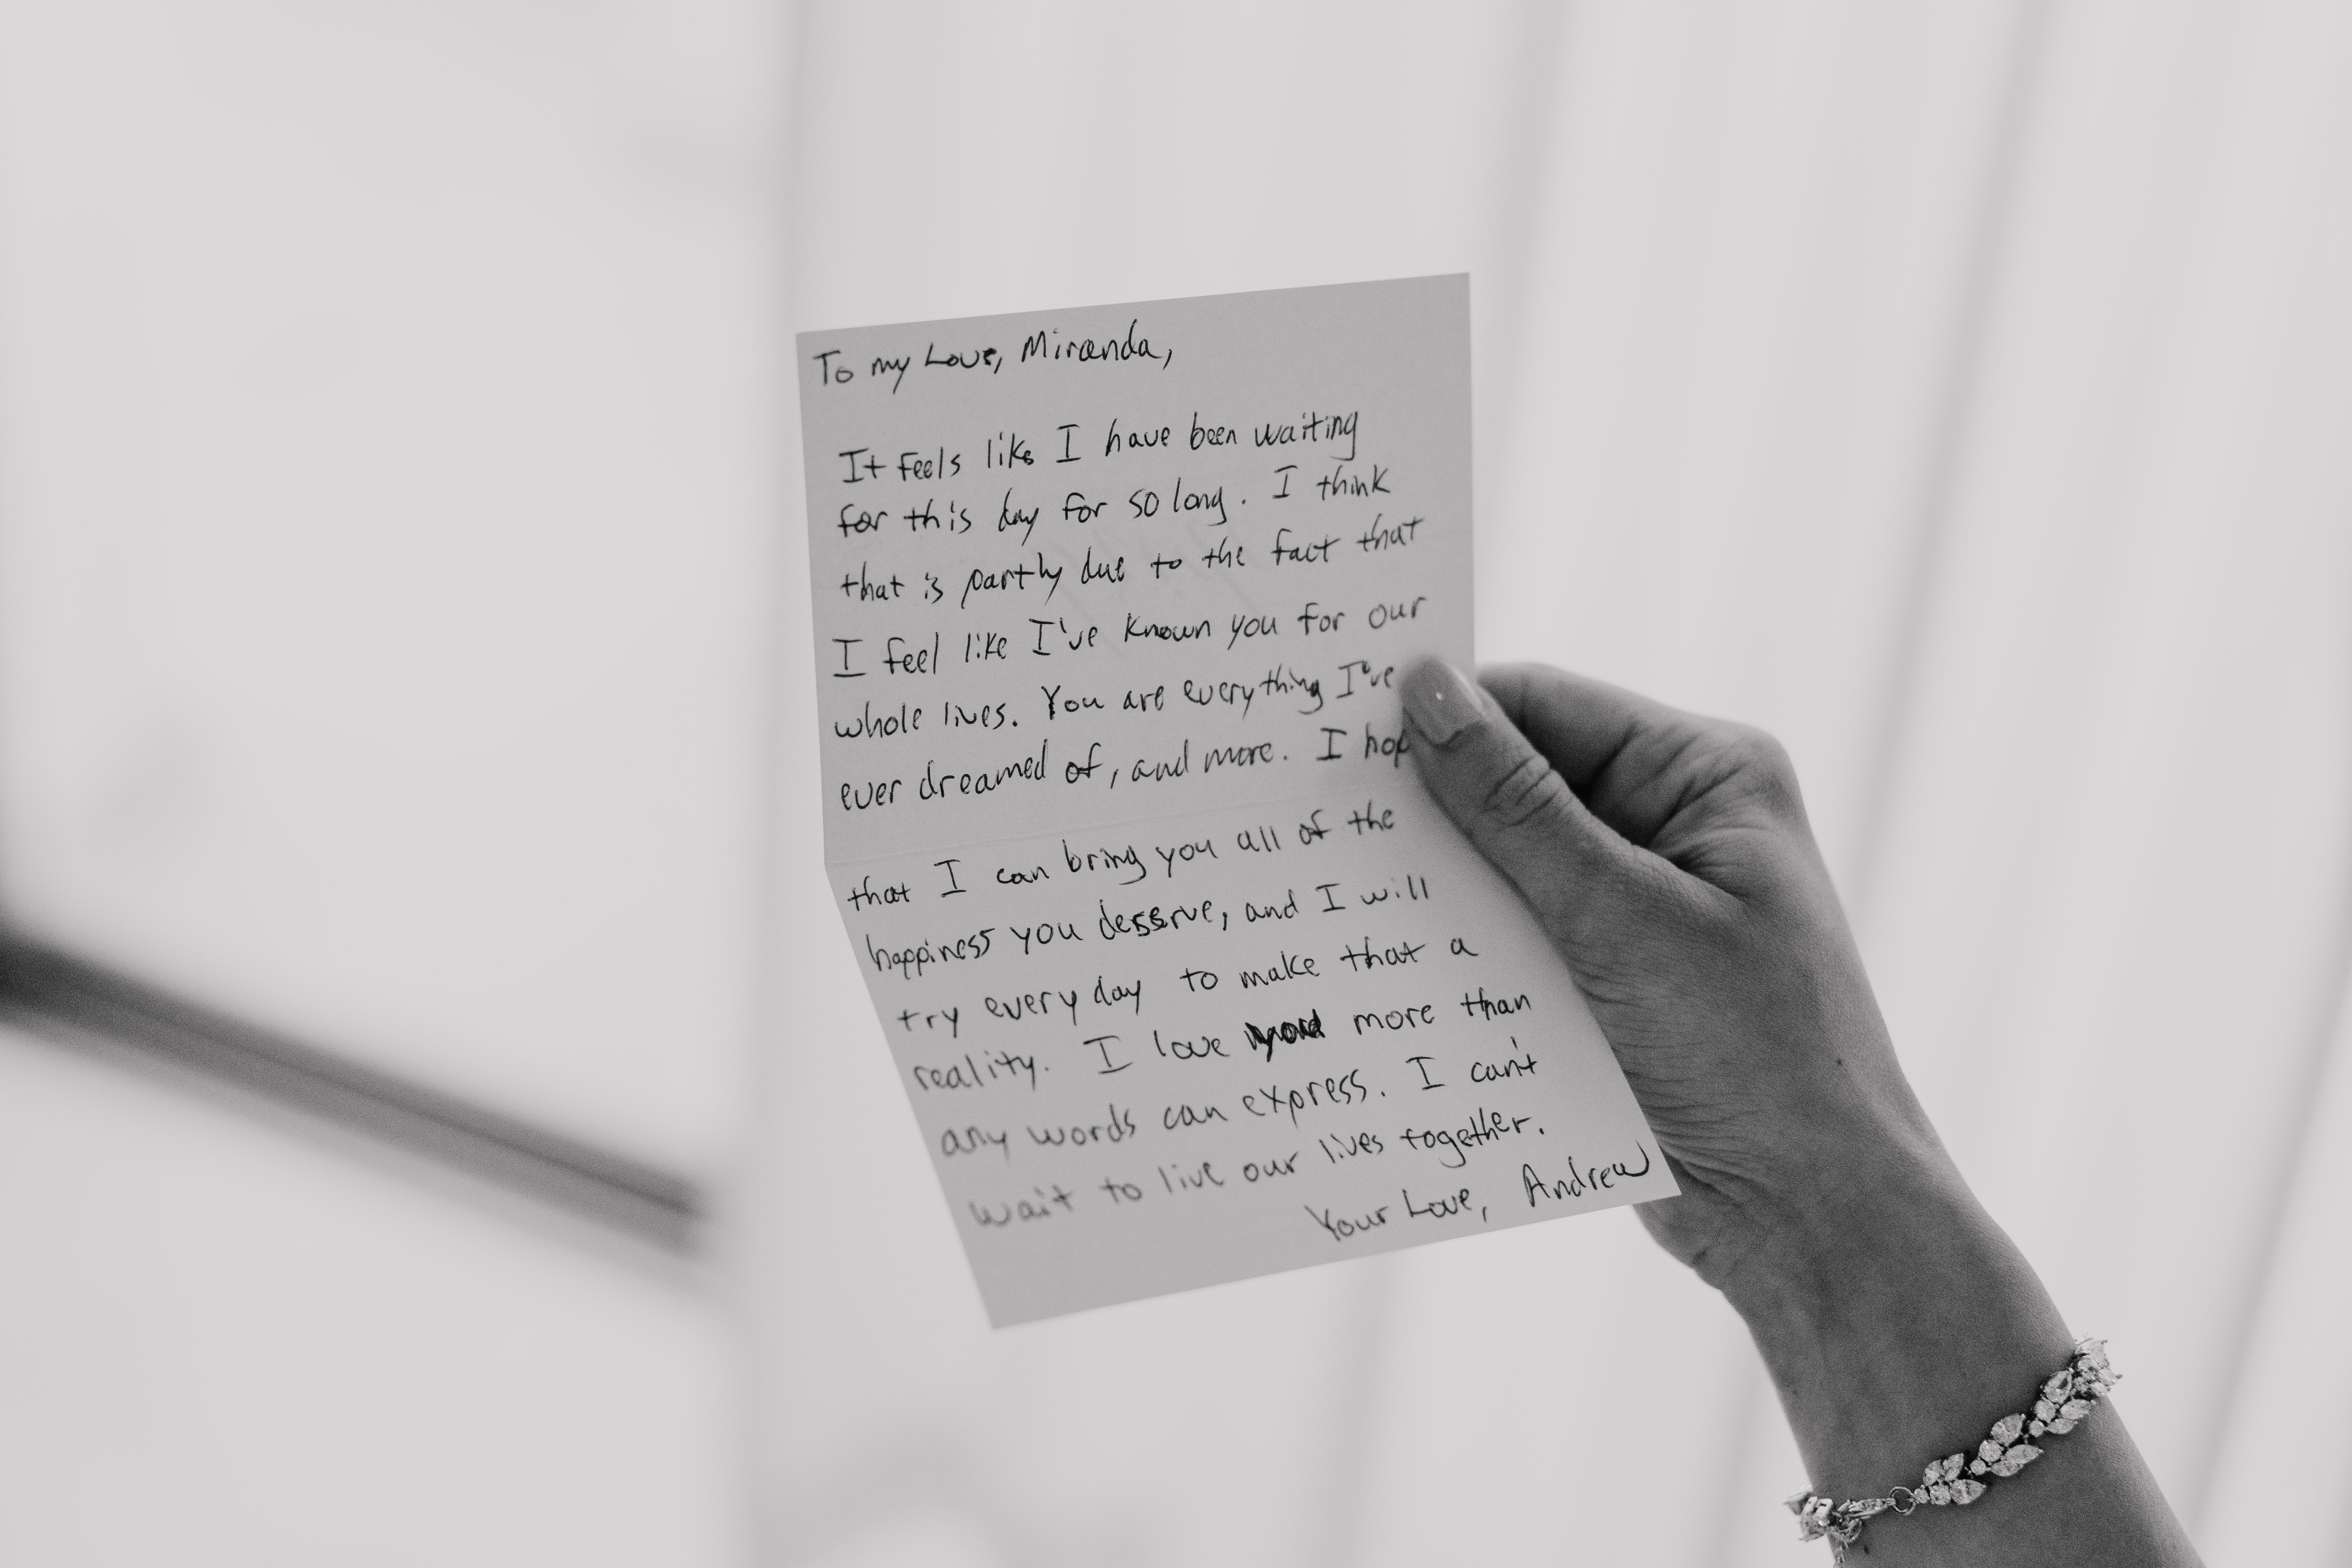 To my Love, Miranda,
It feels like I have been waiting
for this day for so long. I think
that is partly due to the fact that
I feel like I've known you for our
whole lives. You are everything I've
ever dreamed of, and more. I hop
that I can bring you all of the
happiness you deserve, and I will
try every day to make that a
reality. I love you more than
any words can express. I can't
wait to live our lives together.
Your Love, Andrew